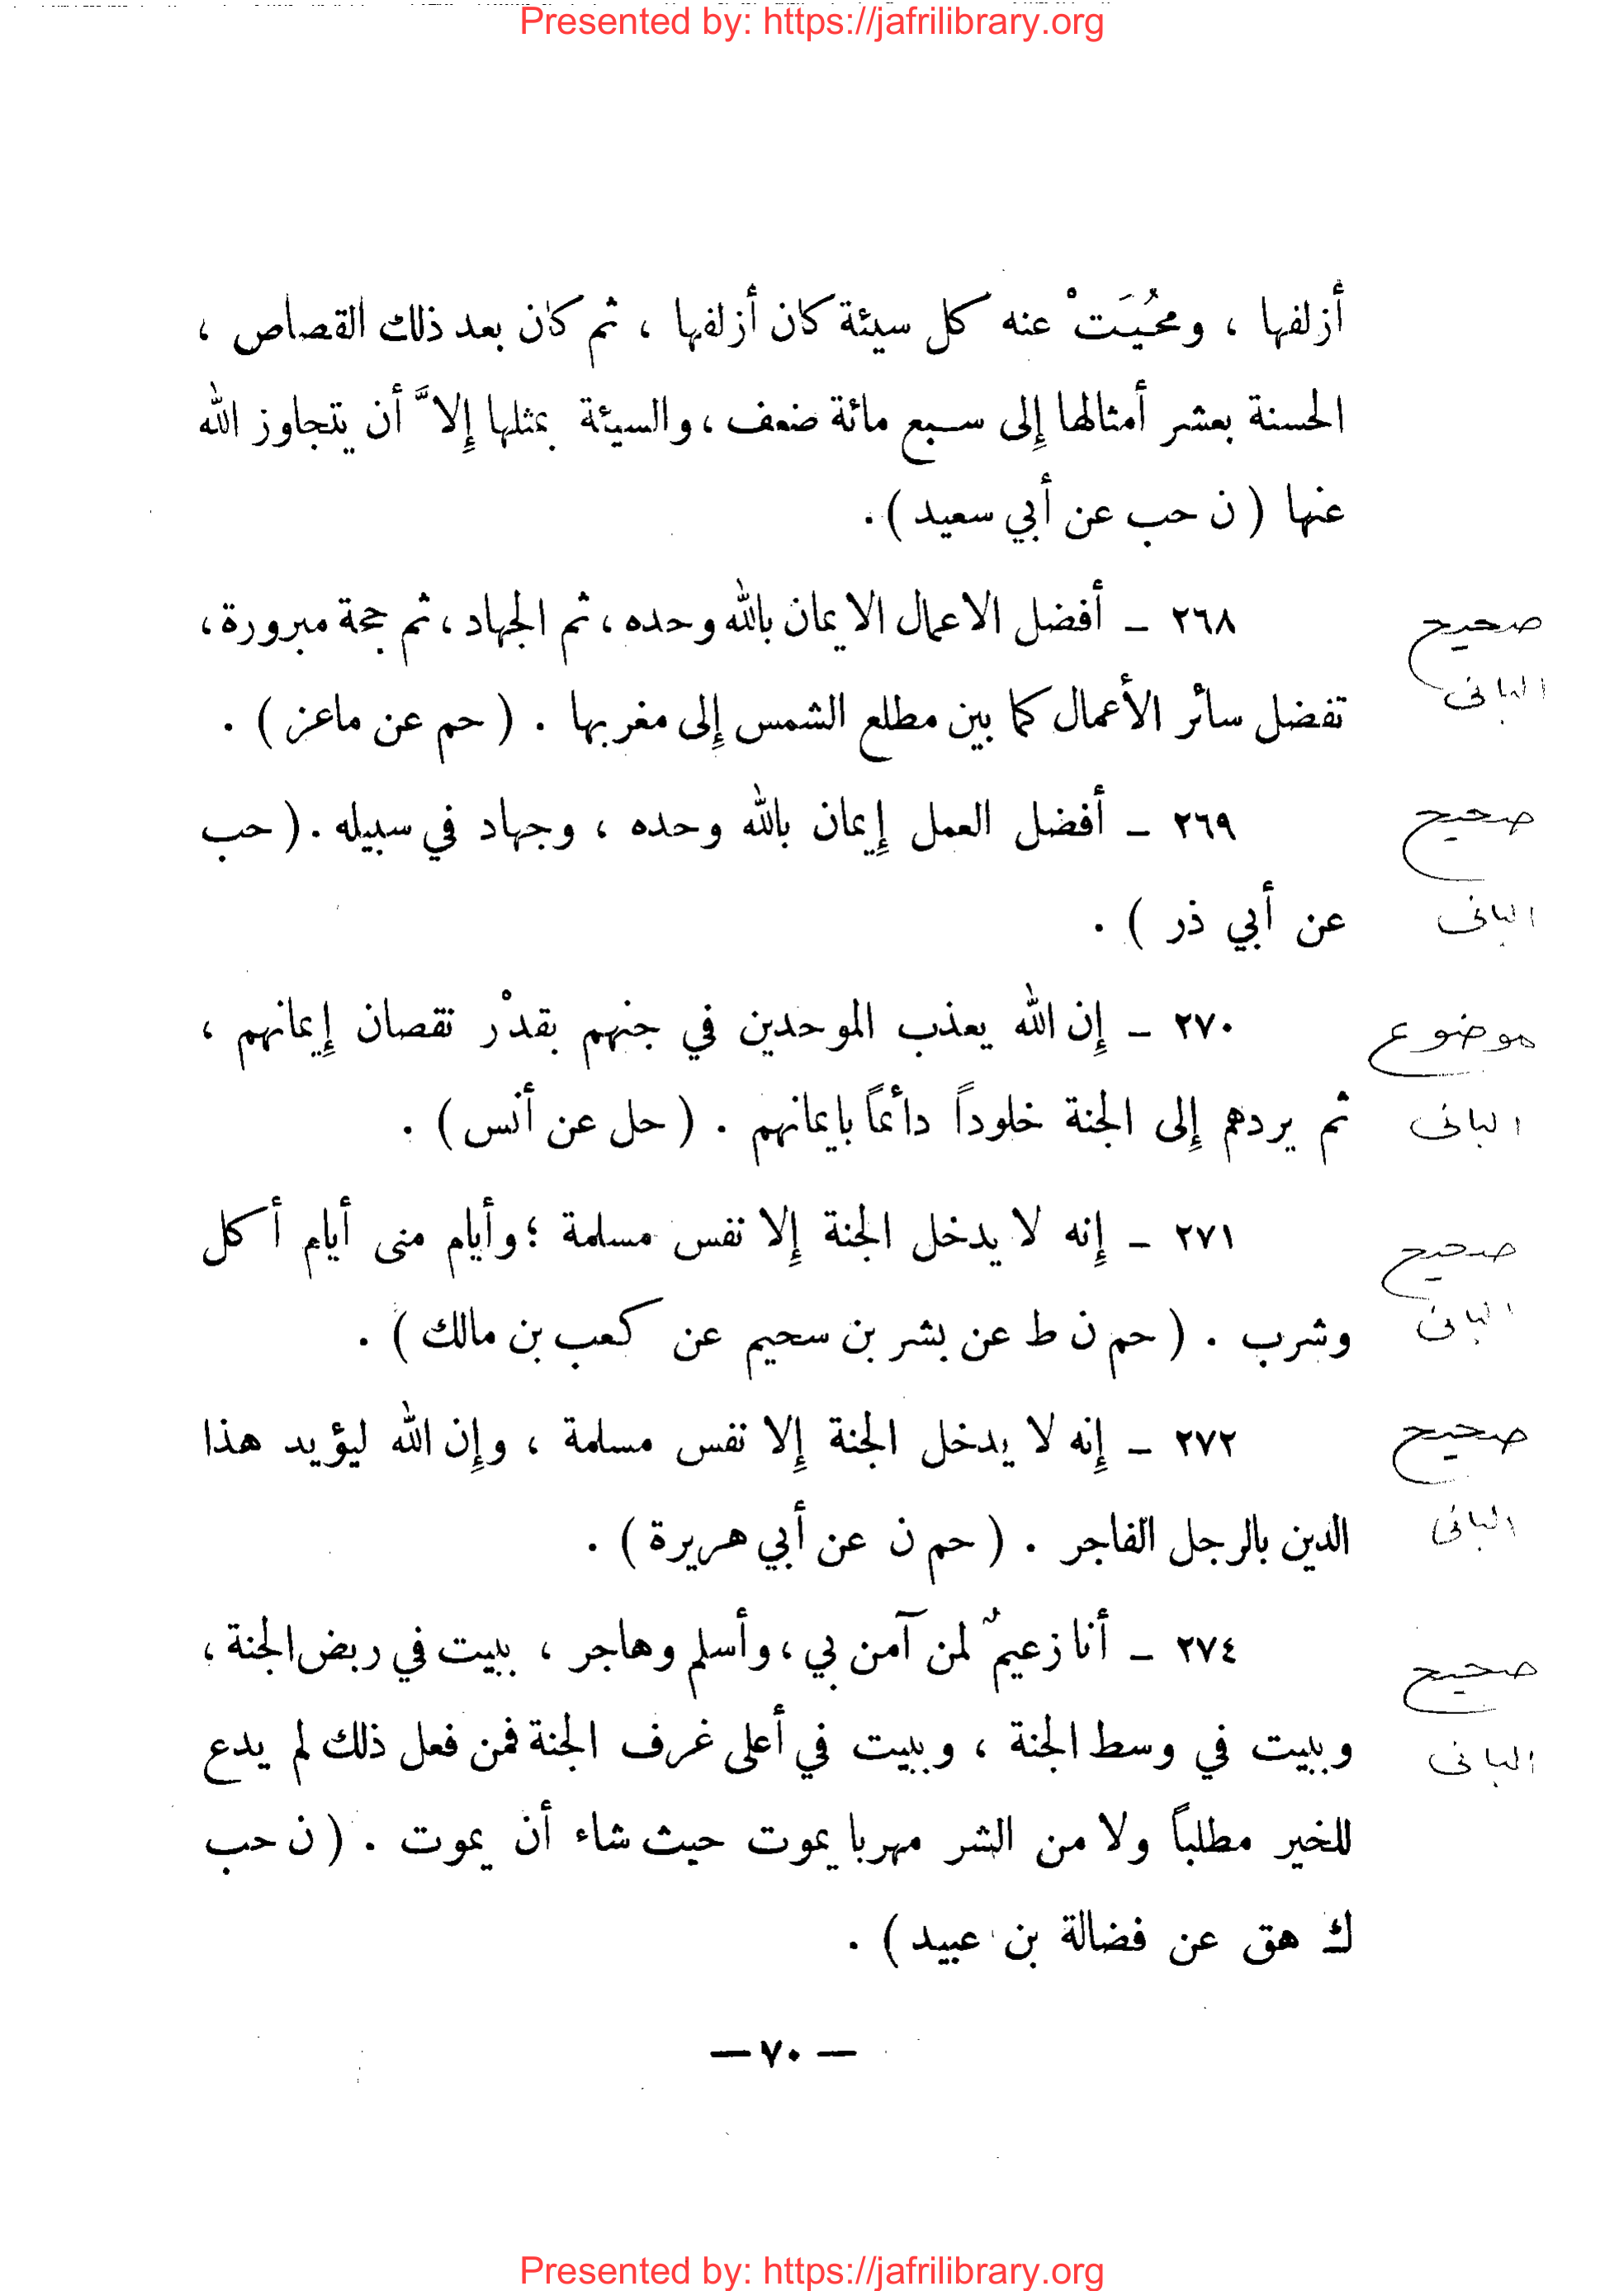 Presented by: https://jafrilibrary.org
أزلفها ، ومحُيَتْ عنه كل سيئة كان أزلفها ، ثم كان بعد ذلك القصاص ،
الحسنة بعشر أمثالها إِلى سبع مائة ضعف ، والسيئة بمثلها إِلاَّ أن يتجاوز الله
عنها ( ن حب عن أبي سعيد ) .
صحيح
٢٦٨ - أفضل الاعمال الايمان بالله وحده ، ثم الجهاد ، ثم حجة مبرورة ،
البانى
تفضل سائر الأعمال كما بين مطلع الشمس إِلى مغربها . ( حم عن ماعز ) .
صحيح
٢٦٩ - أفضل العمل إِيمان بالله وحده ، وجهاد في سبيله . ( حب
البانى
عن أبي ذر ) .
موضوع
٢٧٠ - إِن الله يعذب الموحدين في جنهم بقدْر نقصان إِيمانهم ،
البانى
ثم يردهم إِلى الجنة خلوداً دائماً بايمانهم . ( حل عن أنس ) .
صحيح
٢٧١ - إِنه لا يدخل الجنة إِلا نفس مسلمة ؛ وأيام منى أيام أكل
البانى
وشرب . ( حم ن ط عن بشر بن سحيم عن كعب بن مالك ) .
صحيح
٢٧٢ - إِنه لا يدخل الجنة إِلا نفس مسلمة ، وإِن الله ليؤيد هذا
البانى
الدين بالرجل الفاجر . ( حم ن عن أبي هريرة ) .
صحيح
٢٧٤ - أنا زعيمٌ لمن آمن بي ، وأسلم وهاجر ، ببيت في ربض الجنة ،
البانى
وببيت في وسط الجنة ، وببيت في أعلى غرف الجنة فمن فعل ذلك لم يدع
للخير مطلباً ولا من الشر مهربا يموت حيث شاء أن يموت . ( ن حب
ك هق عن فضالة بن عبيد ) .
— ٧٠ —
Presented by: https://jafrilibrary.org